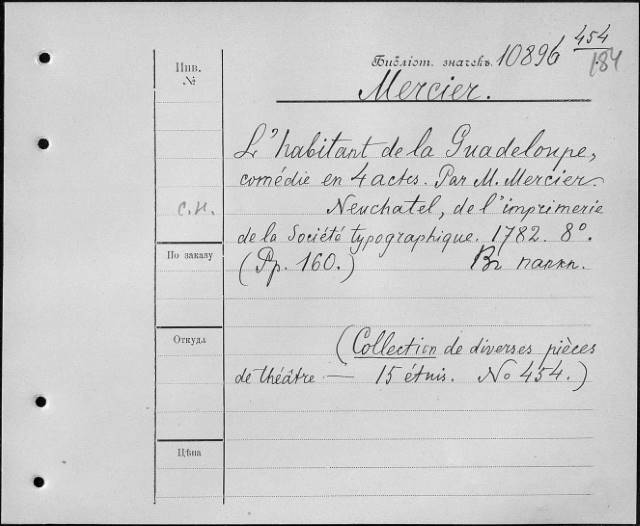 Инв.
№
Библіот. значекъ. 10896 454
184
Mercier.
L'habitant de la Guadeloupe,
comédie en 4 actes. Par M. Mercier.
с.н.
Neuchatel, de l'imprimerie
de la Société typographique. 1782. 8º.
По заказу
(Pp. 160.) Въ папкѣ.
Откуда
(Collection de diverses pièces
de théâtre — 15 étuis. No 454.)
Цѣна